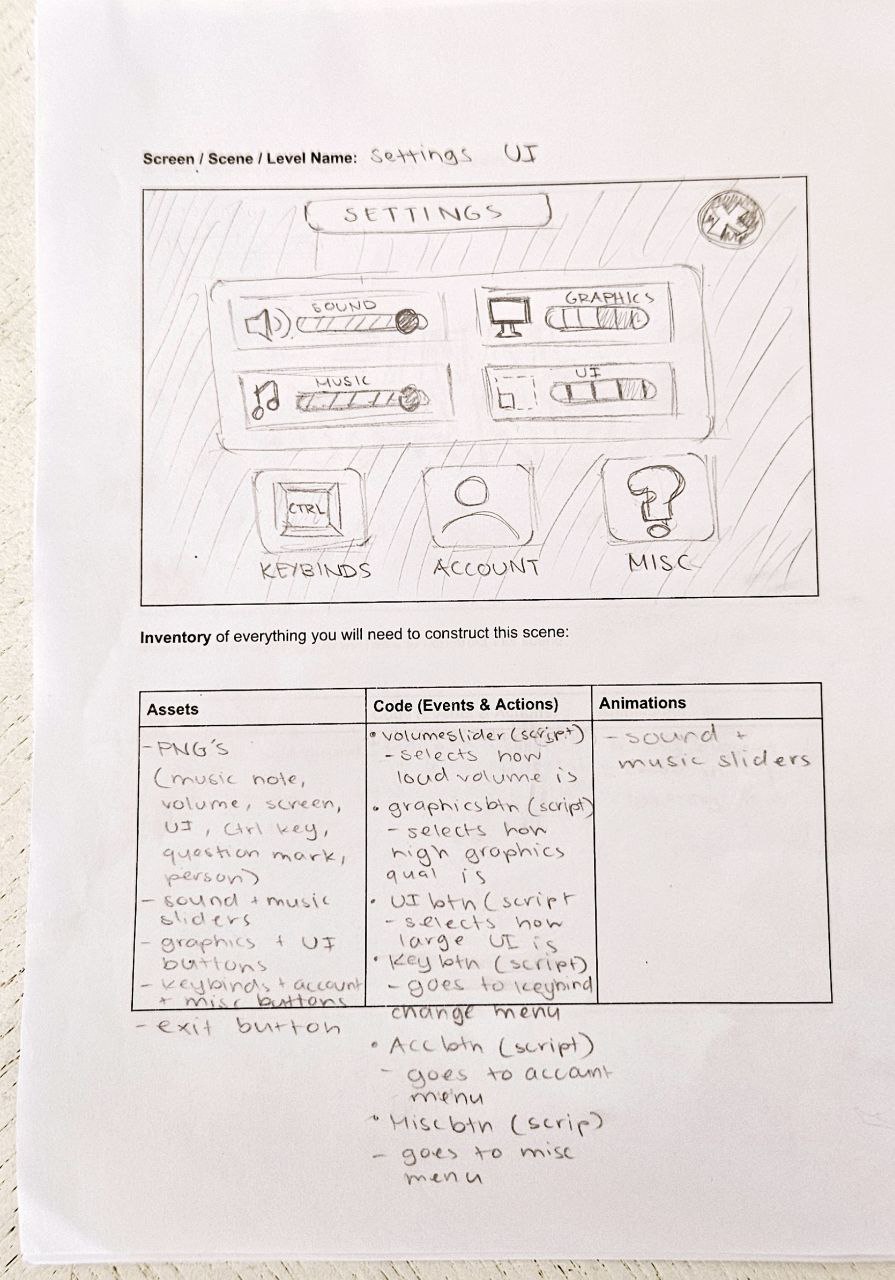 Screen / Scene / Level Name: Settings UI
SETTINGS
SOUND
GRAPHICS
MUSIC
UI
CTRL
KEYBINDS
ACCOUNT
MISC
Inventory of everything you will need to construct this scene:
Assets
- PNG'S
(music note,
volume, screen,
UI, Ctrl key,
question mark,
person)
- sound + music
sliders
- graphics + UI
buttons
- keybinds + account
+ misc buttons
- exit button
Code (Events & Actions)
• volumeslider (script)
- selects how
loud volume is
• graphicsbtn (script)
- selects how
high graphics
qual is
• UI btn (script
- selects how
large UI is
• Key btn (script)
- goes to keybind
change menu
• Acc btn (script)
- goes to account
menu
• Misc btn (scrip)
- goes to misc
menu
Animations
- sound +
music sliders